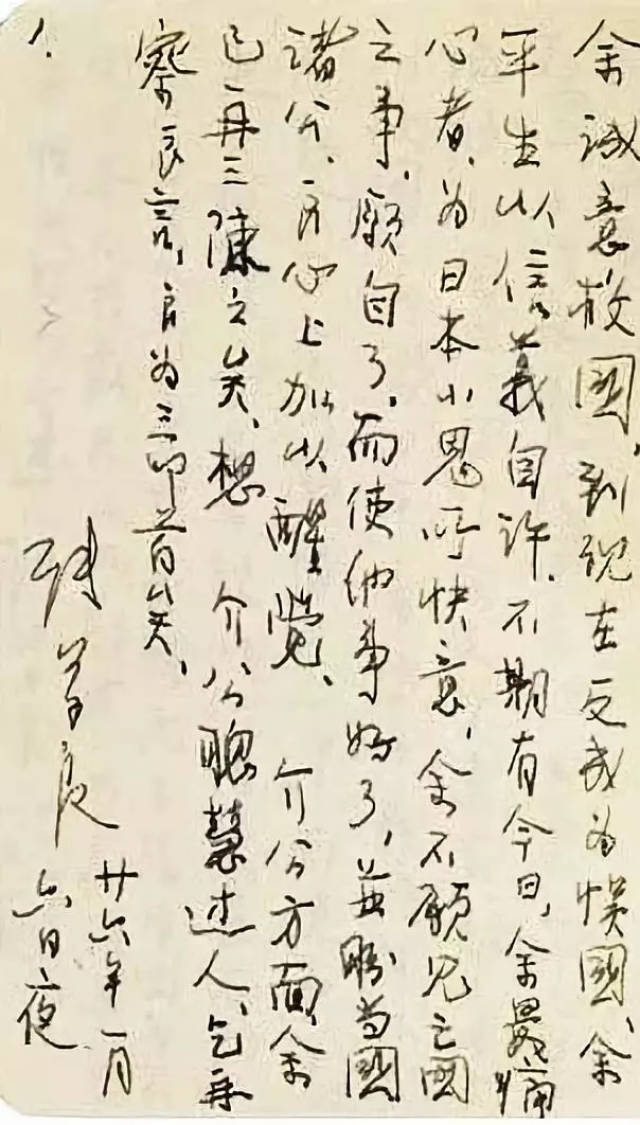 余诚意救國,到现在反成为悮國、余
平生以信義自许.不期有今日、余最痛
心者、为日本小鬼所快意、余不願见亡國
之事、願自了、而使他事好了、並盼当國
诸公、良心上加以醒覺、 介公方面、余
已再三陳之矣、想 介公聰慧过人、乞再
察良言、良为三叩首矣、
张学良
廿六年一月
六日夜
1.